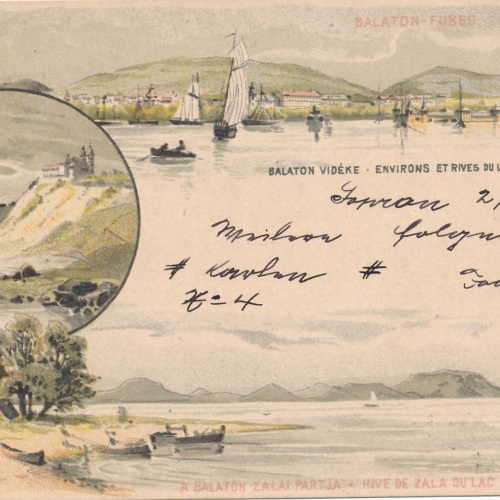 BALATON-FÜRED
BALATON VIDÉKE - ENVIRONS ET RIVES DU L
Sopron 2/
Weitere folgen
# Karten #
No 4
A BALATON ZALAI PARTJA - RIVE DE ZALA DU LAC